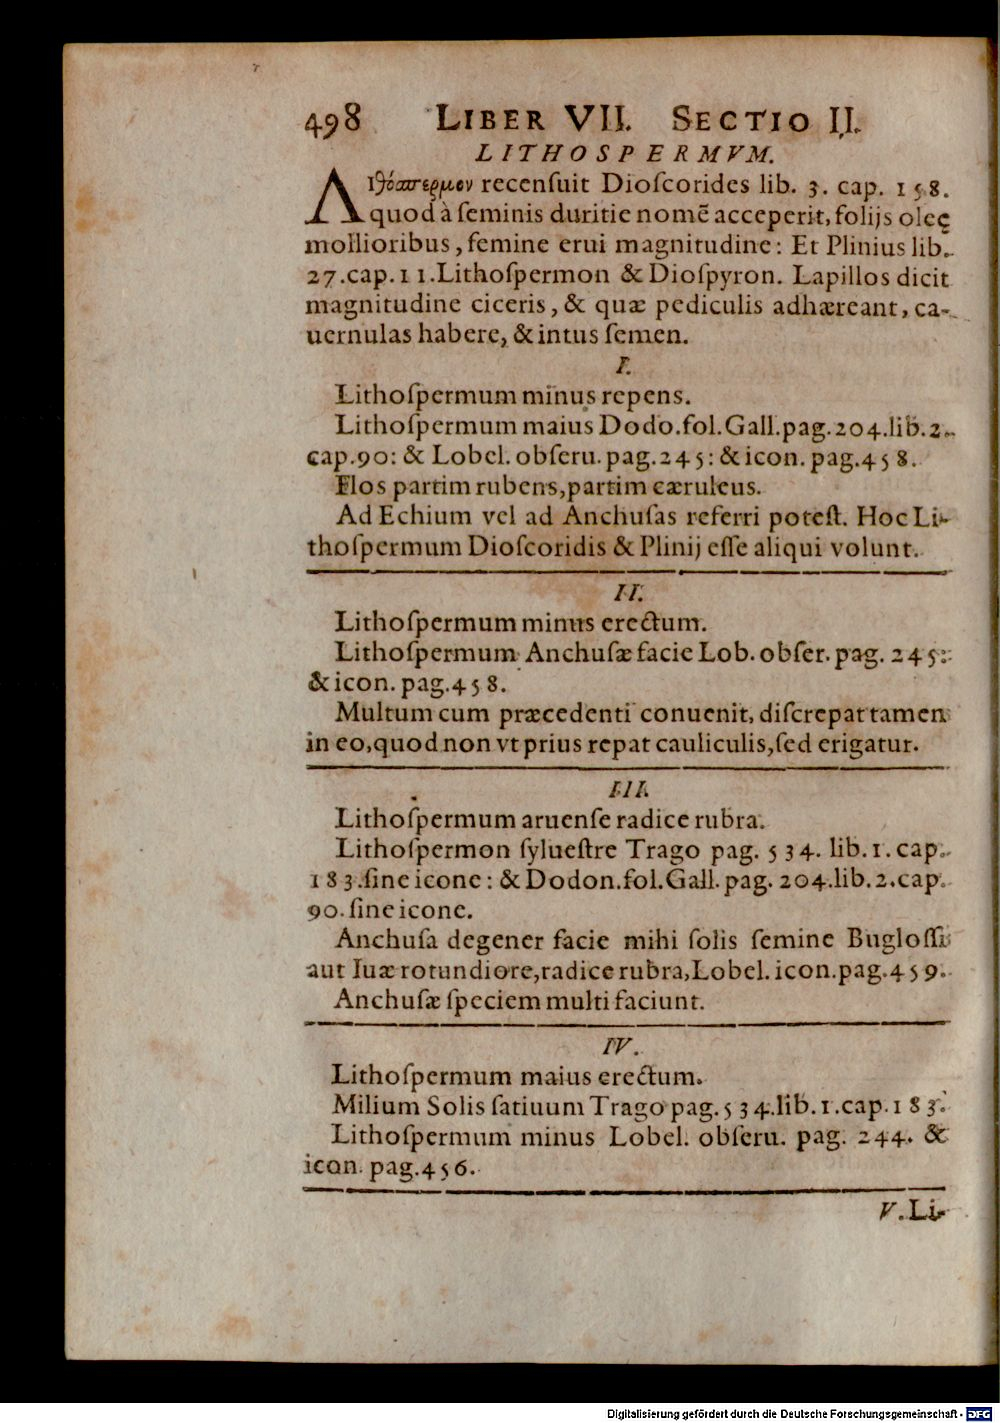 498 LIBER VII. SECTIO II.
LITHOSPERMVM.
Λιθόσπερμον recenſuit Dioſcorides lib. 3. cap. 158.
quod à ſeminis duritie nomē acceperit, folijs oleę
mollioribus, ſemine erui magnitudine: Et Plinius lib.
27.cap.11.Lithoſpermon & Dioſpyron. Lapillos dicit
magnitudine ciceris, & quæ pediculis adhæreant, ca-
uernulas habere, & intus ſemen.
I.
Lithoſpermum minus repens.
Lithoſpermum maius Dodo.fol.Gall.pag.204.lib.2.
cap.90: & Lobel. obſeru. pag.245: & icon. pag.458.
Flos partim rubens, partim cæruleus.
Ad Echium vel ad Anchuſas referri poteſt. Hoc Li-
thoſpermum Dioſcoridis & Plinij eſſe aliqui volunt.
II.
Lithoſpermum minus erectum.
Lithoſpermum Anchuſæ facie Lob. obſer. pag. 245:
& icon. pag.458.
Multum cum præcedenti conuenit, diſcrepat tamen
in eo, quod non vt prius repat cauliculis, ſed erigatur.
III.
Lithoſpermum aruenſe radice rubra.
Lithoſpermon ſylueſtre Trago pag. 534. lib.1. cap.
183.ſine icone: & Dodon.fol.Gall.pag. 204.lib.2.cap.
90. ſine icone.
Anchuſa degener facie mihi ſolis ſemine Bugloſſi
aut Iuæ rotundiore, radice rubra, Lobel. icon.pag.459.
Anchuſæ ſpeciem multi faciunt.
IV.
Lithoſpermum maius erectum.
Milium Solis ſatiuum Trago pag.534.lib.1.cap.183.
Lithoſpermum minus Lobel. obſeru. pag. 244. &
icon. pag.456.
V. Li-
Digitalisierung gefördert durch die Deutsche Forschungsgemeinschaft - DFG